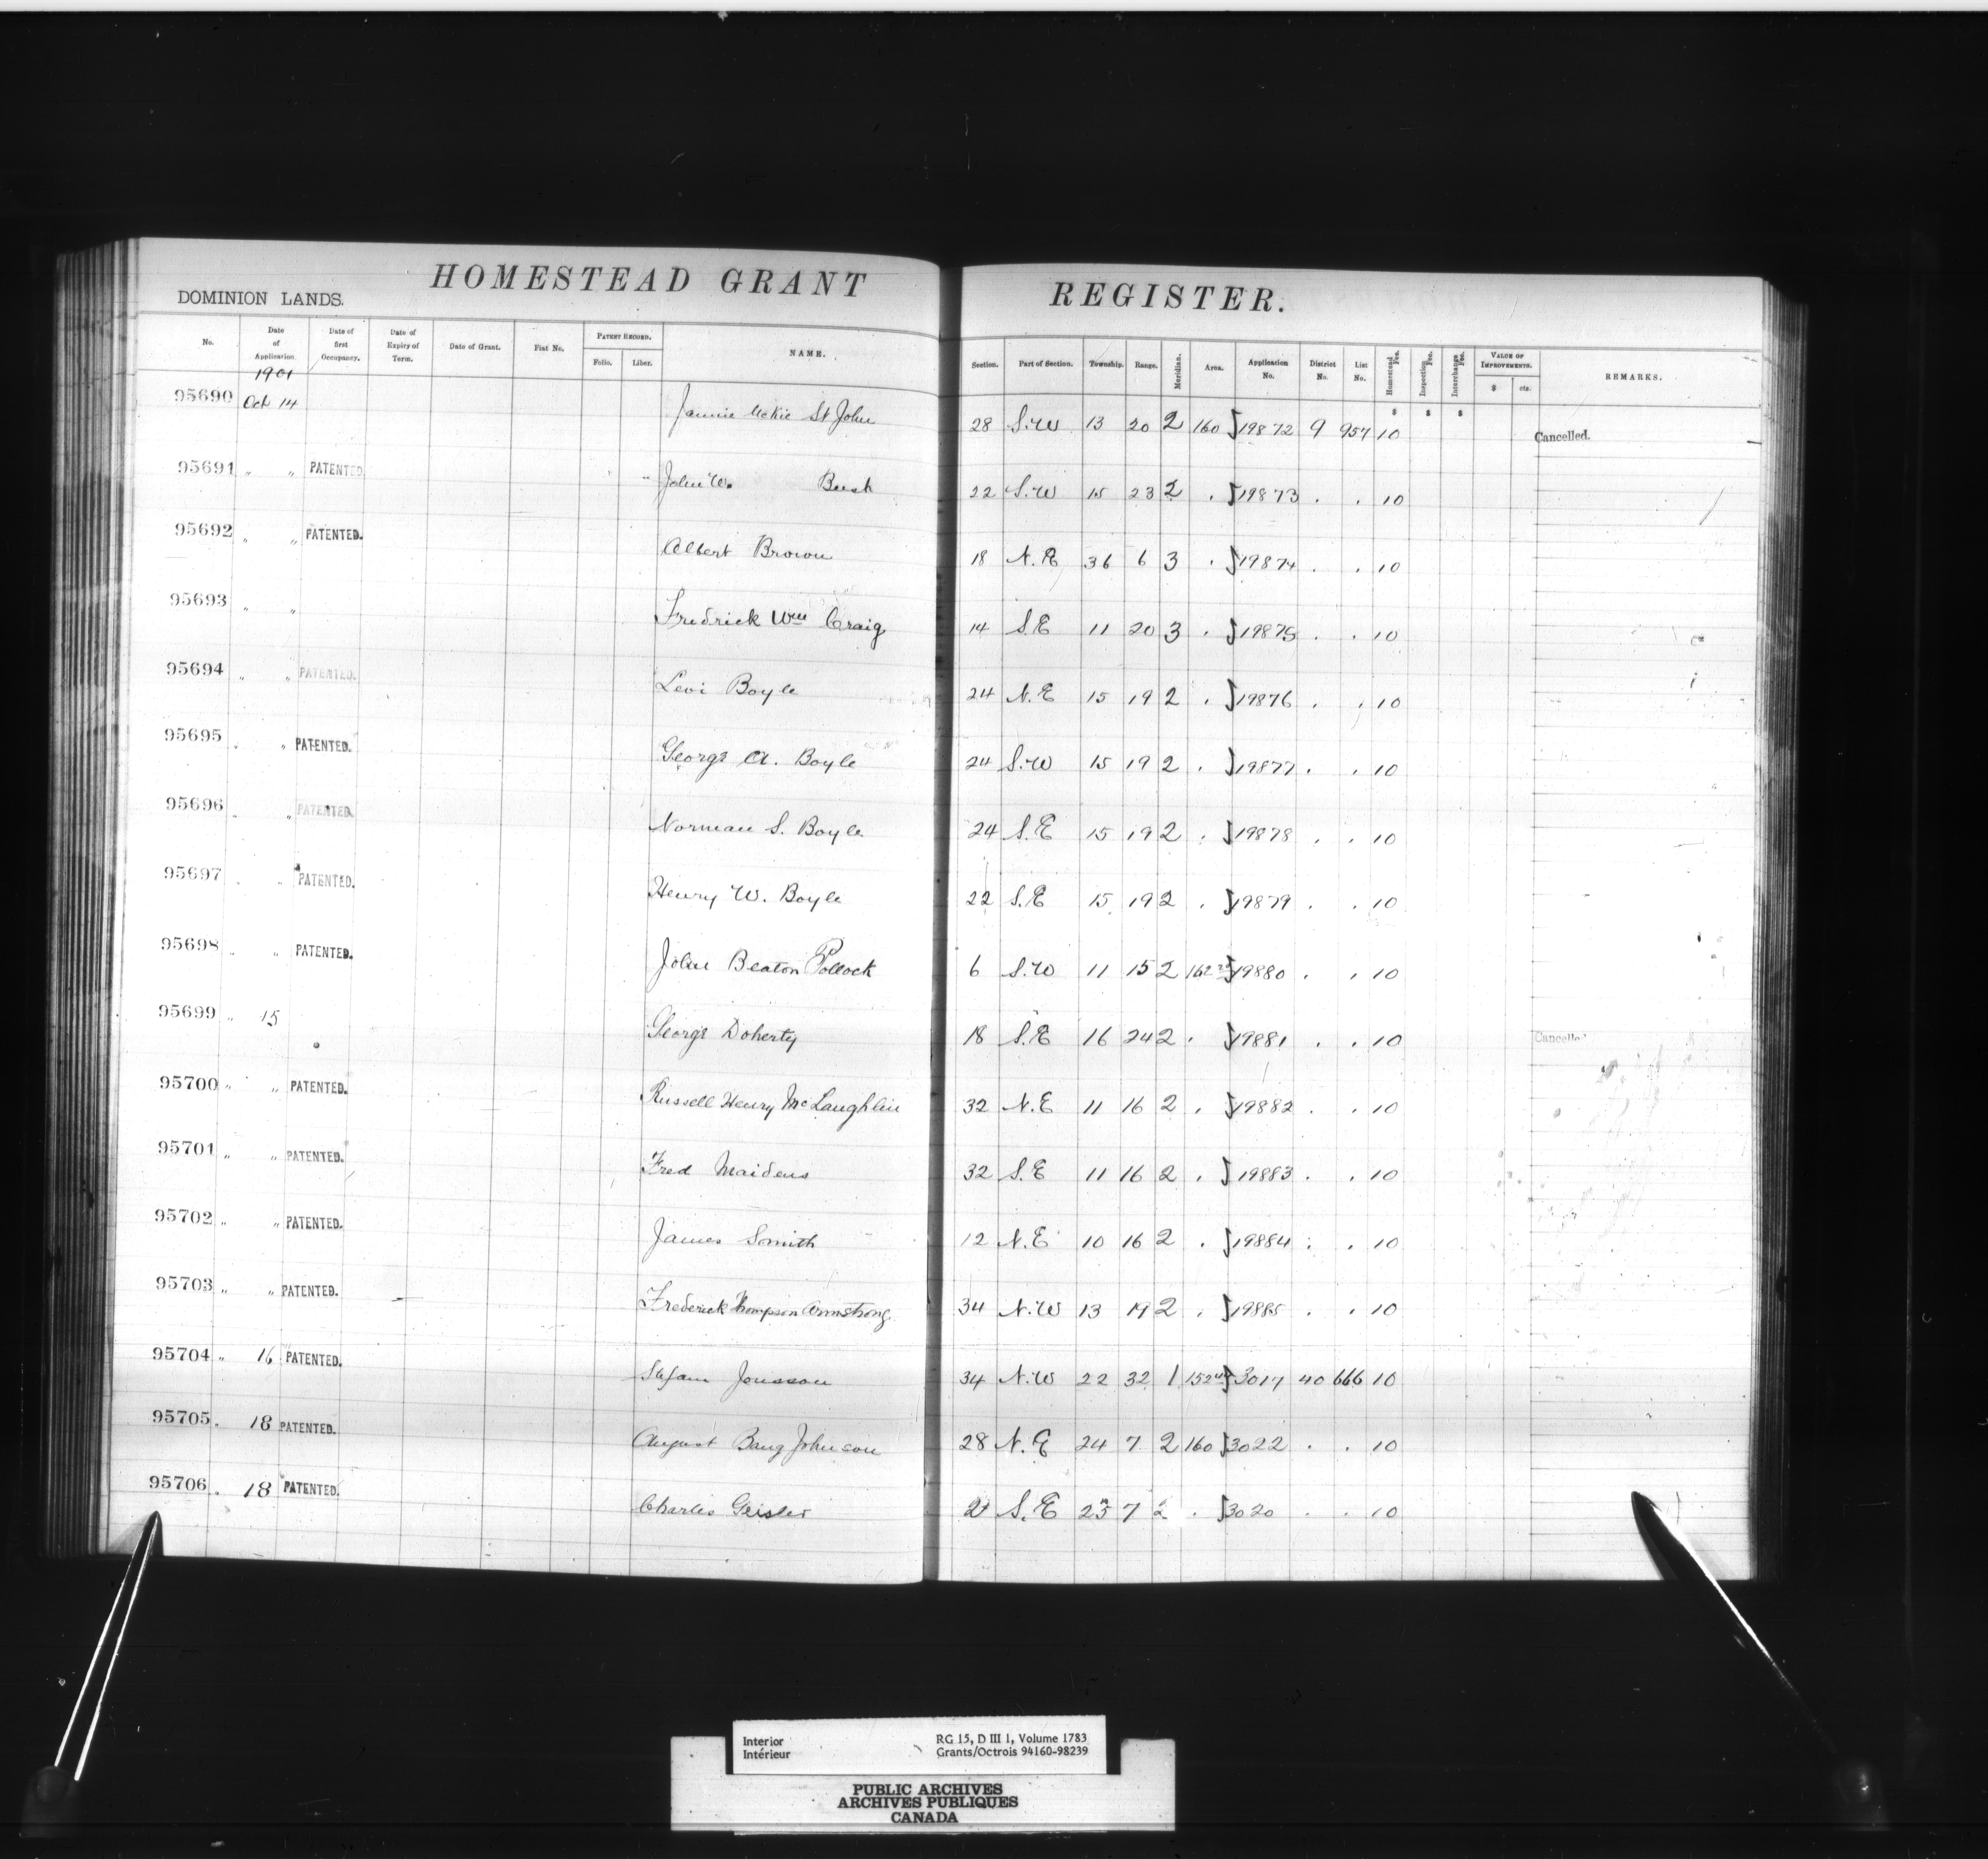 HOMESTEAD GRANT REGISTER.
DOMINION LANDS.
No. Date of Application. Date of first Occupancy. Date of Expiry of Term. Date of Grant. Fiat No. PATENT RECORD. Folio. Liber. NAME. Section. Part of Section. Township. Range. Meridian. Area. Application No. District No. List No. Homestead Fee. Inspection Fee. Interchange Fee. VALUE OF IMPROVEMENTS. $ cts. REMARKS.
1901 $ $ $
95690 Oct 14 Jannie McKie St John 28 S.W 13 20 2 160 19872 9 957 10 Cancelled.
95691 " " PATENTED John W. Bush 22 S.W 15 23 2 . 19873 . . 10
95692 " " PATENTED. Albert Brown 18 N.E 36 6 3 . 19874 . . 10
95693 " " Fredrick Wm Craig 14 S.E 11 20 3 . 19875 . . 10
95694 " " PATENTED. Levi Boyle 24 N.E 15 19 2 . 19876 . . 10
95695 " " PATENTED. George A. Boyle 24 S.W 15 19 2 . 19877 . . 10
95696 " " PATENTED. Norman S. Boyle 24 S.E 15 19 2 . 19878 . . 10
95697 " " PATENTED. Henry W. Boyle 22 S.E 15 19 2 . 19879 . . 10
95698 " " PATENTED. John Beaton Pollock 6 S.W 11 15 2 162 19880 . . 10
95699 " 15 George Doherty 18 S.E 16 24 2 . 19881 . . 10 Cancelled
95700 " " PATENTED. Russell Henry McLaughlin 32 N.E 11 16 2 . 19882 . . 10
95701 " " PATENTED. Fred Maidens 32 S.E 11 16 2 . 19883 . . 10
95702 " " PATENTED. James Smith 12 N.E 10 16 2 . 19884 . . 10
95703 " " PATENTED. Frederick Thompson Armstrong 34 N.W 13 19 2 . 19885 . . 10
95704 " 16 PATENTED. Stefan Jonsson 34 N.W 22 32 1 152 3017 40 666 10
95705 " 18 PATENTED. August Baug Johnson 28 N.E 24 7 2 160 3022 . . 10
95706 " 18 PATENTED. Charles Geisler S.E 7 2 . 3020 . . 10
Interior RG 15, D III 1, Volume 1783
Intérieur Grants/Octrois 94160-98239
PUBLIC ARCHIVES
ARCHIVES PUBLIQUES
CANADA